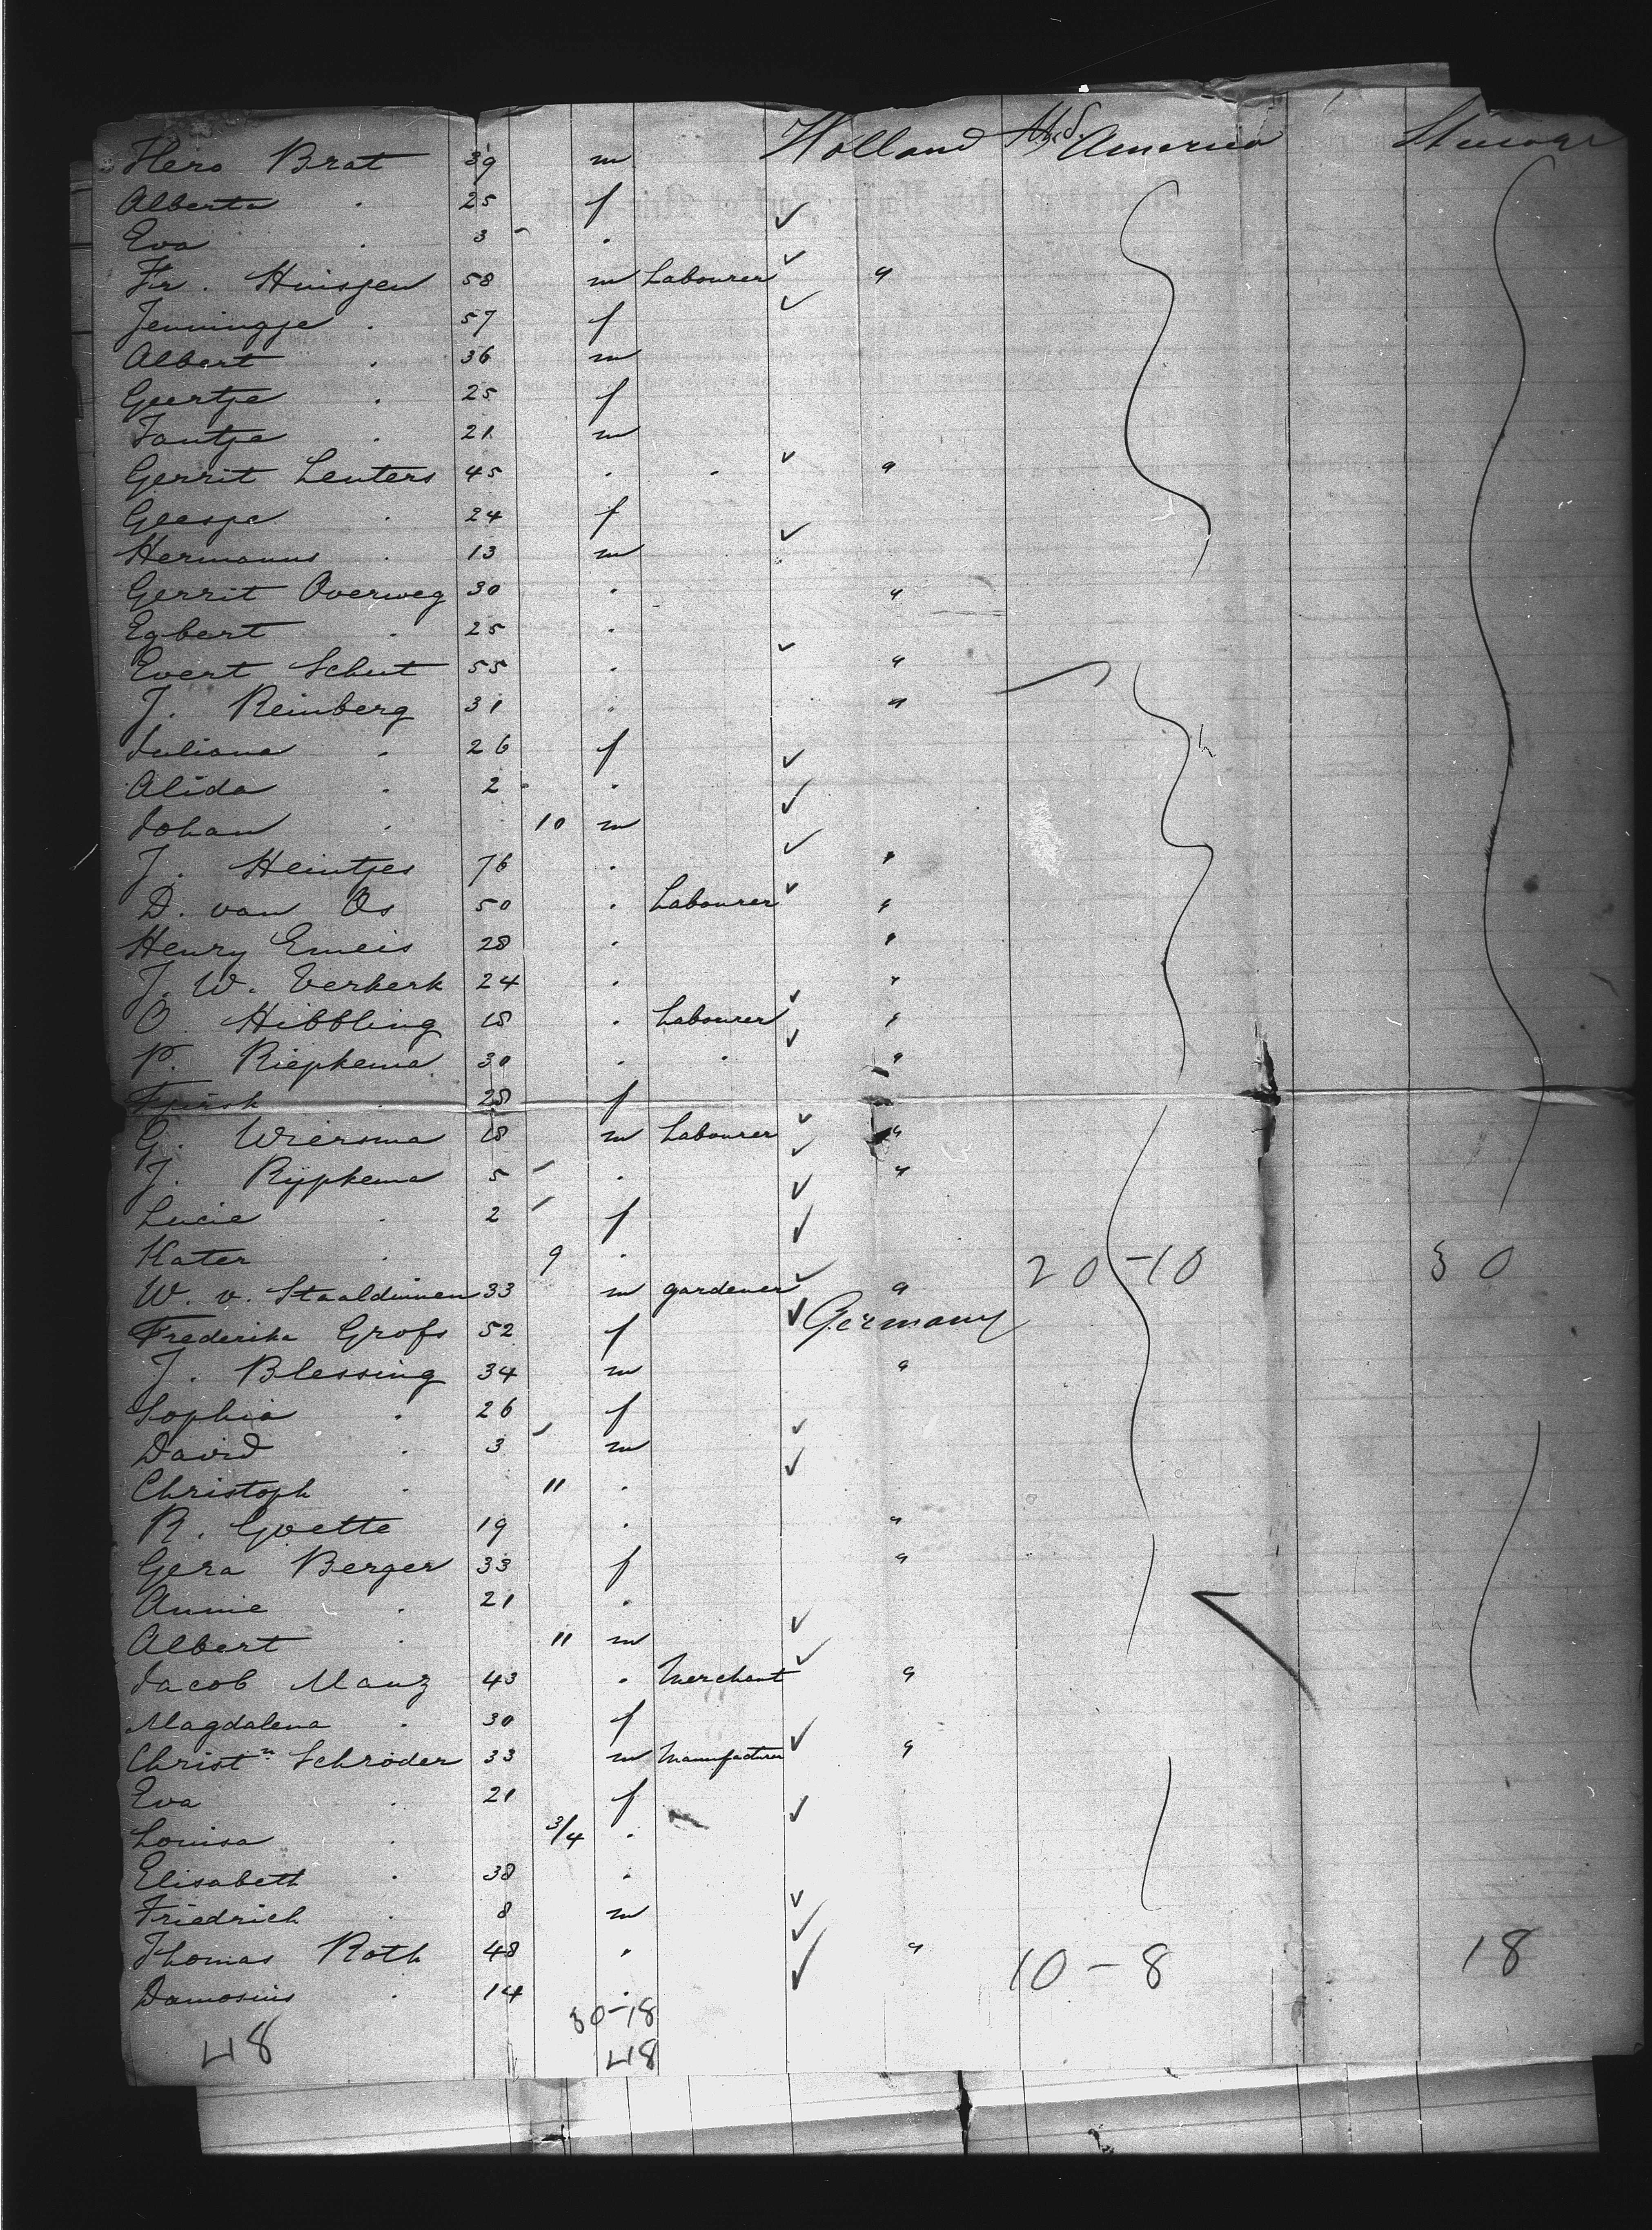 Hero Brat 39 m Holland America
Alberta . 25 f
Eva . 3 .
Fr. Huisjen 58 m Labourer "
Jenningje . 57 f
Albert . 36 m
Geertje . 25 f
Jantje . 21 m
Gerrit Lenters 45 . . "
Geesje . 24 f
Hermannus . 13 m
Gerrit Overweg 30 . "
Egbert . 25 .
Evert Schut 55 . "
J. Reinberg 31 . "
Juliana . 26 f
Alida . 2 .
Johan . 10 m
J. Heintjes 76 . "
D. van Os 50 . Labourer "
Henry Emeis 28 . "
J. W. Verkerk 24 . "
O. Hibbling 18 . Labourer "
P. Riepkema 30 . . "
28 f
G. Wiersma 18 m Labourer "
J. Rijpkema 5 . "
Lucie . 2 f
Kater . 9 . 20-10 30
W. v. Staalduinen 33 m gardener "
Frederika Grofs 52 f Germany
J. Blessing 34 m "
Sophia . 26 f
David . 3 m
Christoph . 11 .
R. Goette 19 . "
Gera Berger 33 f "
Annie . 21 .
Albert . 11 m
Jacob Manz 43 . Merchant "
Magdalena . 30 f
Christn Schröder 33 m Manufacturer "
Eva . 21 f
Louisa . 3/4 .
Elisabeth . 38 .
Friedrich . 8 m
Thomas Roth 48 . " 10-8 18
Damosius . 14 .
30-18
48 48